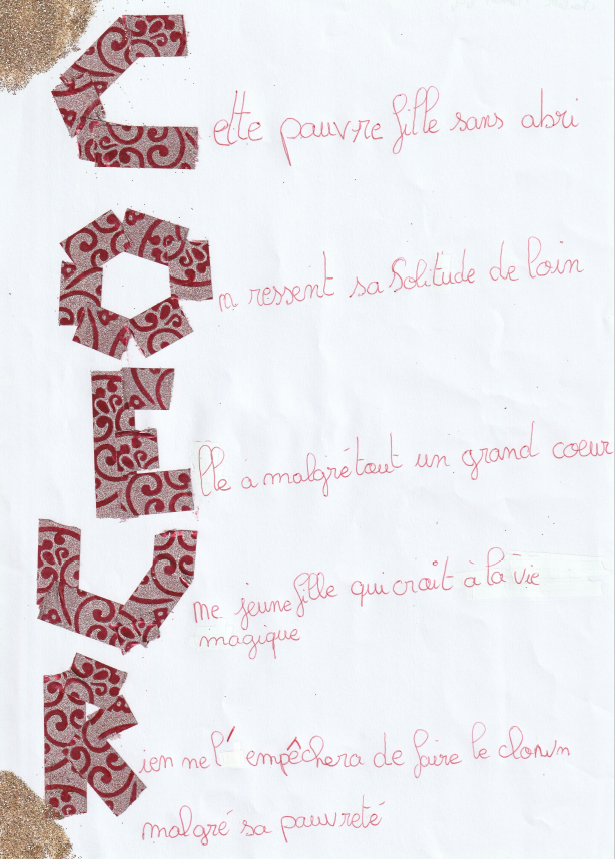 Cette pauvre fille sans abri
On ressent sa Solitude de loin
Elle a malgré tout un grand coeur
Une jeune fille qui croit à la vie
magique
Rien ne l'empêchera de faire le clown
malgré sa pauvreté